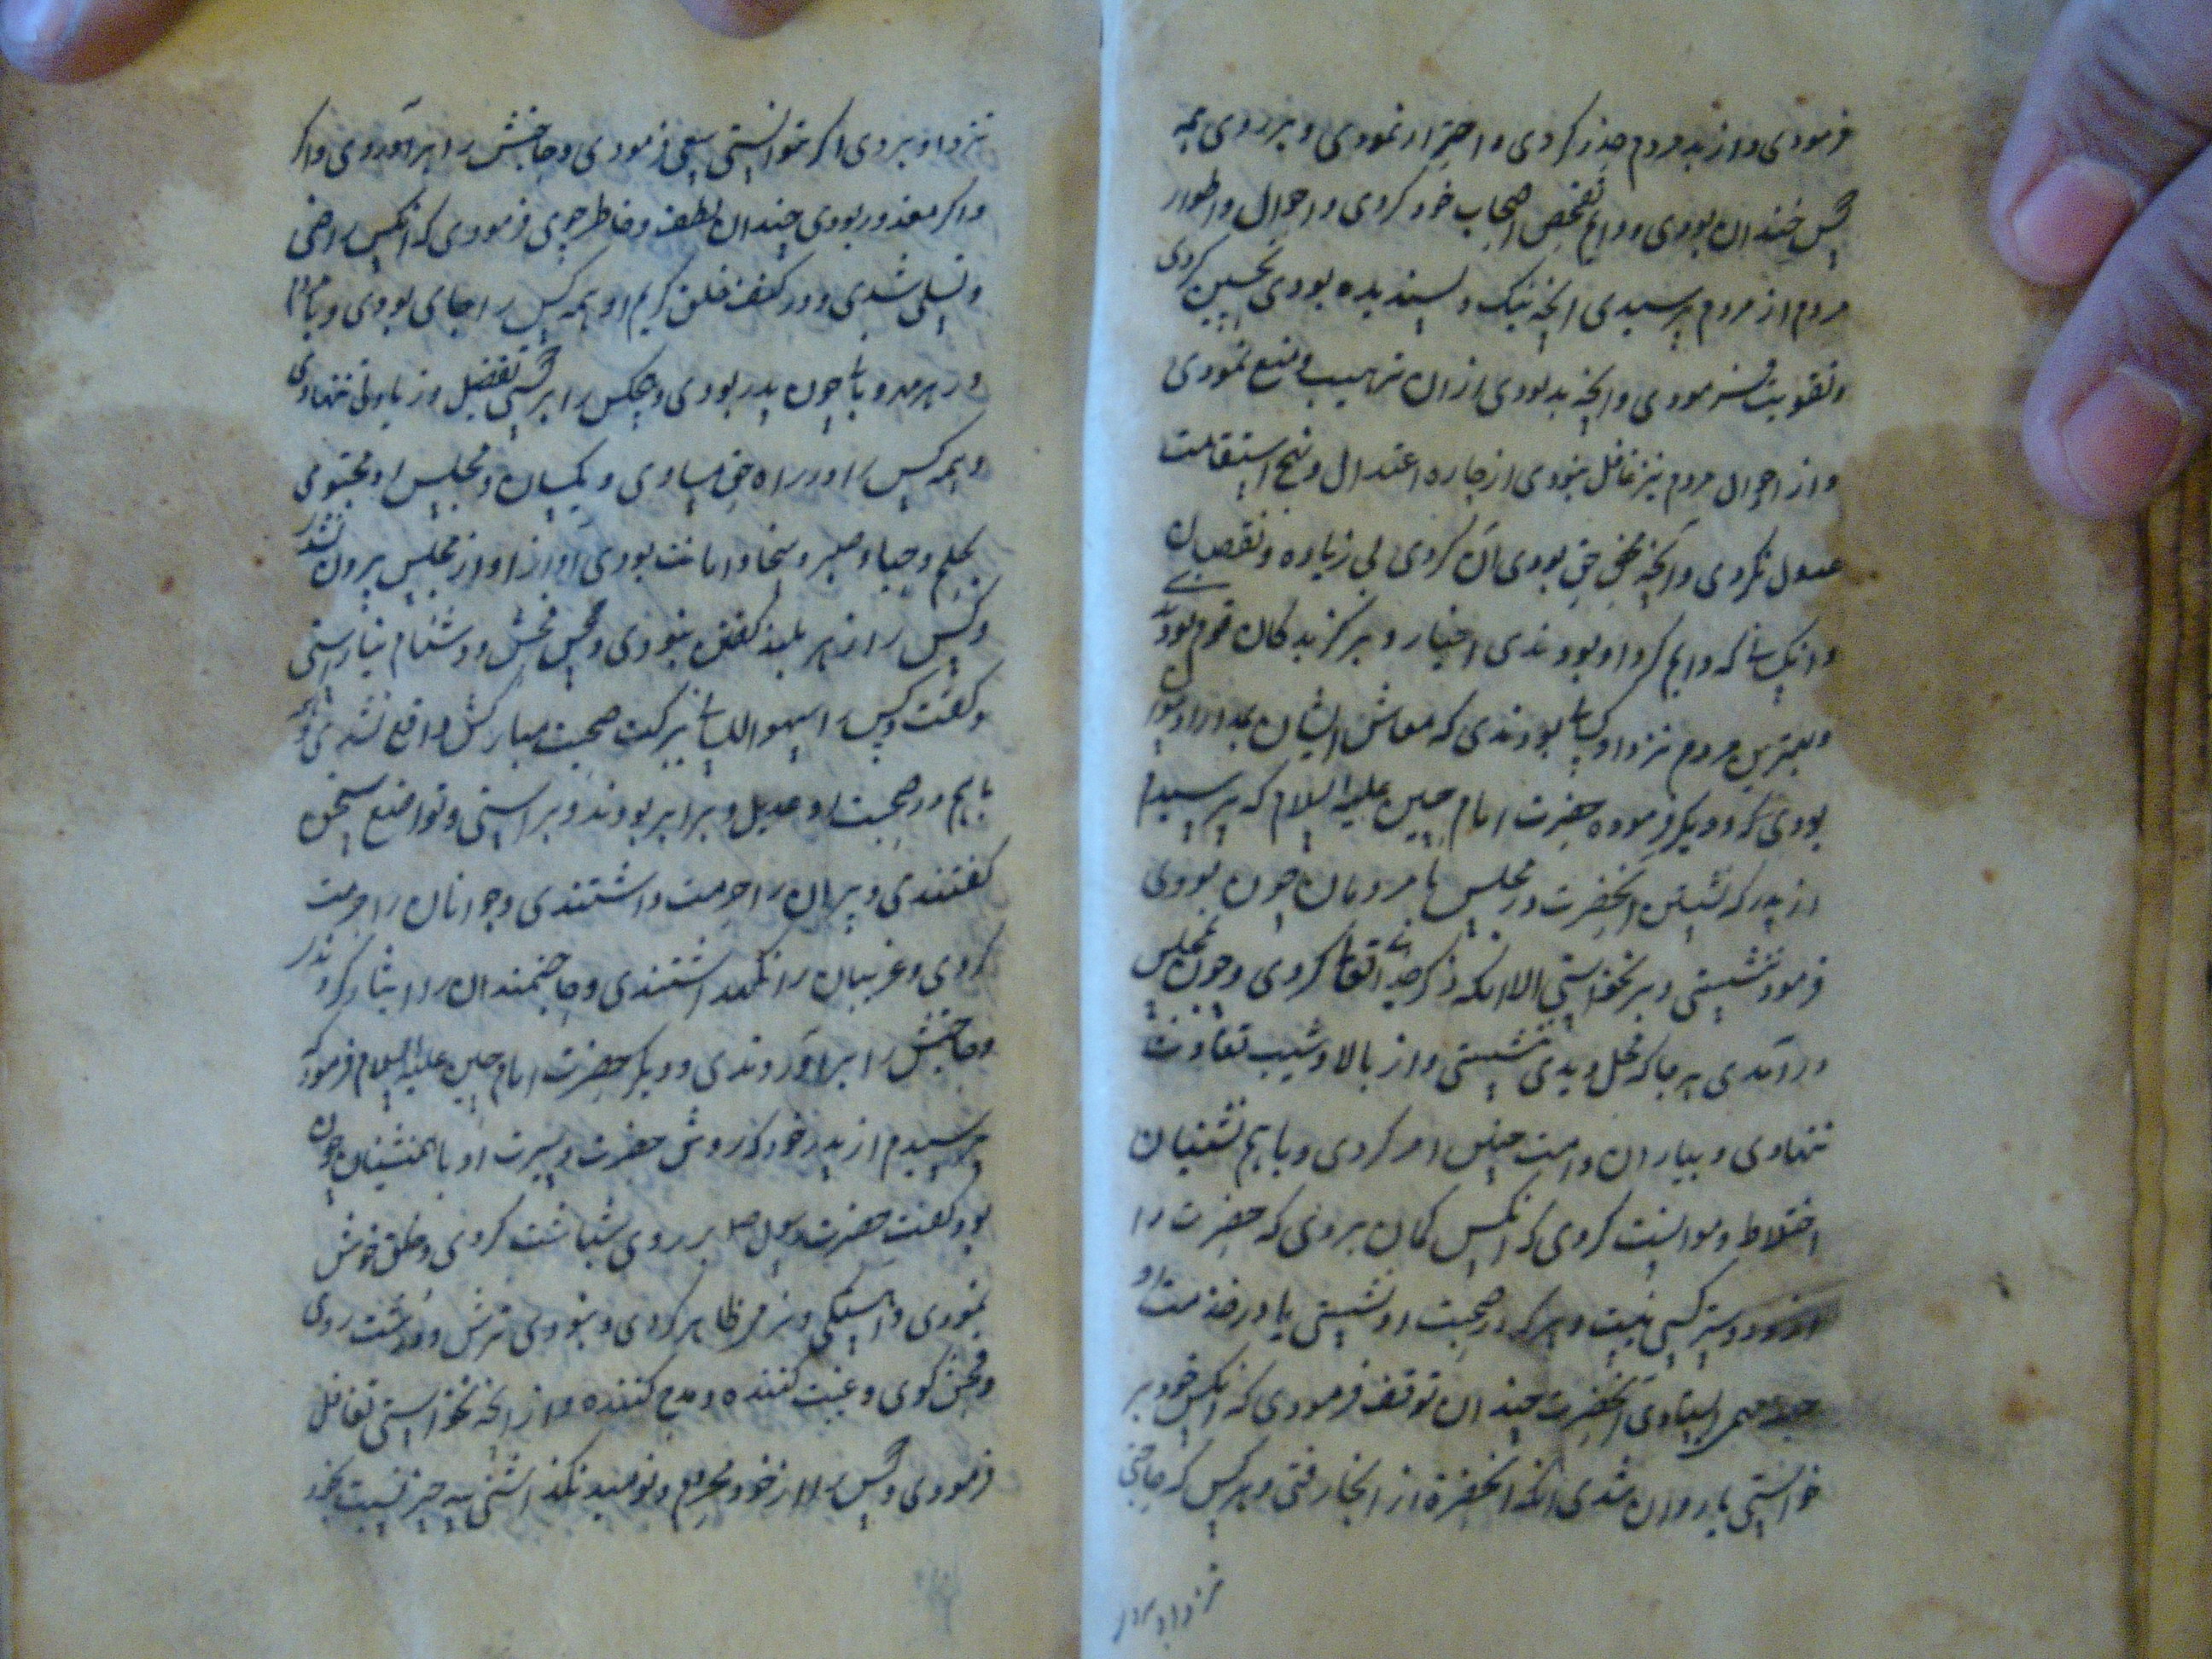 فرمودی و از بد مردم حذر کردی و احتراز نمودی و بر روی همه
کس خندان بودی و دایم تفحص اصحاب خود کردی و احوال و اطوار
مردم از مردم پرسیدی انچه نیک و پسندیده بودی تحسین کردی
و تقویت فرمودی و انچه بد بودی ازان ترهیب و منع نمودی
و از احوال مردم نیز غافل نبودی از جاده اعتدال و نهج استقامت
عدول نکردی و آنچه محض حق بودی آن کردی بی زیاده و نقصان
و انکسانی که دایم گرد او بودندی اخیار و برگزیدگان قوم بودند
و بهترین مردم نزد او کسانی بودندی که معاش ایشان
بودی که دیگر فرموده حضرت امام حسین علیه السلام که پرسیدم
از پدر که نشستن انحضرت در مجلس با مردمان چون بودی
فرمود ننشستی و برنخواستی الا انکه ذکر خدای تعالی کردی و چون بمجلس
در آمدی هر جا که محل دیدی نشستی و از بالا و شیب تفاوت
ننهادی و بیاران و امت چنین امر کردی و با هم نشینان
اختلاط و موانست کردی که انکس گمان بردی که حضرت را
ازو دوستر کسی نیست و هر که در صحبت او نشستی یا در خدمت او
انحضرت چندان توقف فرمودی که انکس خود بر
خواستی یا روان شدی انکه انحضرة از انجا رفتی و هر کس که حاجتی
نزد او بردی
نزد او بردی اگر توانستی سعی فرمودی و حاجتش را برآوردی و اگر
و اگر معذور بودی چندان لطف و خاطر جویی فرمودی که انکس راضی
و تسلی شدی و در کنف خلق کریم او همه کس را جای بودی و با مردم
در بر مهر و با چون پدر بودی و هیچکس را بر کسی تفضیل و زیادتی ننهادی
و همه کس را در راه حق مساوی و یکسان و مجلس او محتوی
بحلم و حیا و صبر و سخا و امانت بودی آواز او از مجلس بیرون نشدی
و کس را زهر بلند گفتن نبودی و کس فحش و دشنام نیارستی
گفت و کس را سهو اللسانی ببرکت صحبت مبارکش واقع نشدی
با هم در صحبت او عدیل و برابر بودند و براستی و تواضع سخن
گفتندی و پیران را حرمت داشتندی و جوانان را حرمت
کردی و غریبان را نگهداشتندی و حاجتمندان را ایثار کردندی
و حاجتش را برآوردندی و دیگر حضرت امام حسین علیه السلام فرموده
پرسیدم از پدر خود که روش حضرت و سیرت او با همنشینان چون
بود گفت حضرت رسول ص بر روی بشاشت کردی و خلق خوش
نمودی و آهستگی و نرمی ظاهر کردی و نبودی ترش و درشت روی
و فحش گوی و غیبت کننده و مدح کننده و از انچه نخواستی تغافل
فرمودی و کس را از خود محروم و نومید نگذاشتی سه چیز نسبت بخود